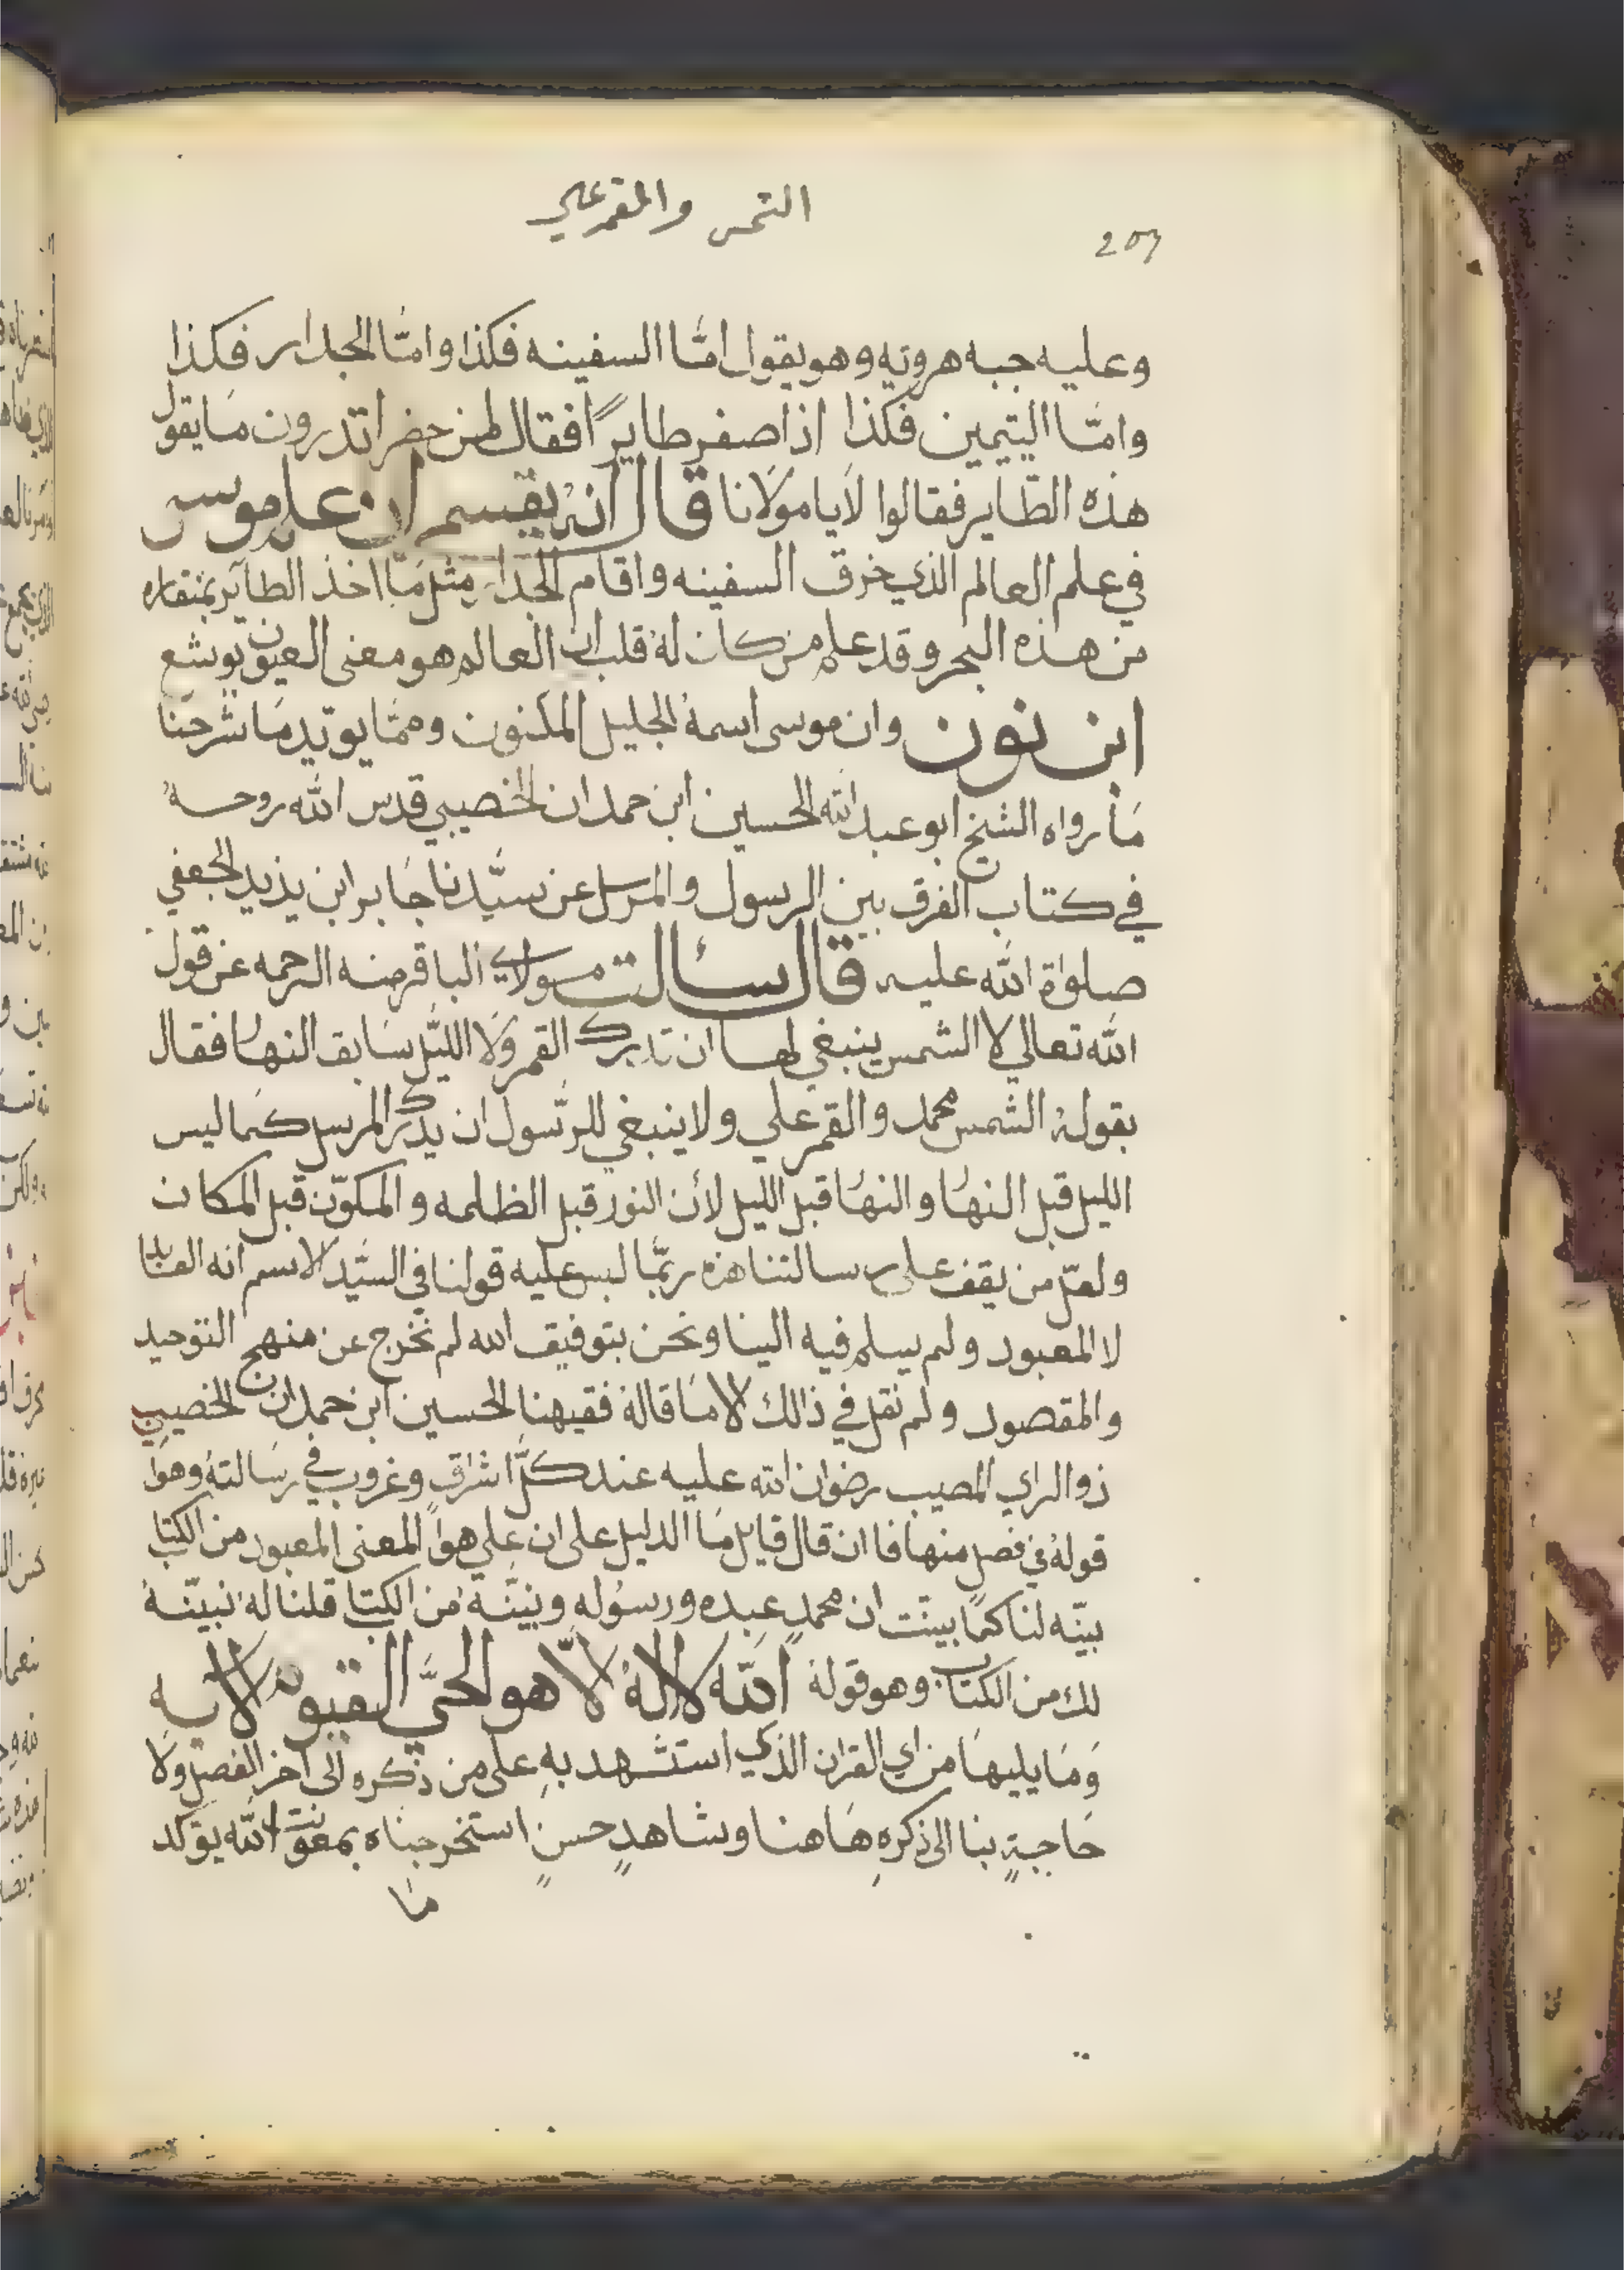 الشمس والقمر علي
207
وعليه جبه هرويه وهو يقول امّا السفينه فكذا وامّا الجدار فكذا
وامّا اليتيمين فكذا اذا صفر طايرًا فقال لمن حضر اتدرون مَا يقول
هذه الطّاير فقالوا لَا يا موْلَانا قال انهُ يقسم ان علم موسى
في علم العالم الذي خرق السفينه واقام الجدار مثل مَا اخذ الطآير بمنقاره
من هذه البحر وقد علم من كان لهُ قلب ان العالم هو معنى العيون يوشع
ابن نون وان موسى اسمهُ الجليل المكنون وممّا يويّد مَا شرحنَا
مَا رواه الشيخ ابو عبد الله الحسين ابن حمدان الخصيبي قدس الله روحهُ
في كتاب الفرق بين الرسول والمرسل عن سيّدنا جَابر ابن يذيد الجعفي
صلوٰة الله عليه قال سئالت مولاي الباقر منه الرحمه عن قول
الله تعالي لا الشمس ينبغي لها ان تدرك القمر وَلَا اللّيل سَابق النهار فقال
بقولهُ الشمس محمد والقمر علي ولا ينبغي للرّسول ان يدرك المرسل كمَا ليس
الليل قبل النهار والنهار قبل الليل لأن النور قبل الظلمه والمكوّن قبل المكان
ولعلّ من يقف على رسالتنا هذه ربّمَا لبس عليه قولنا في السيّد الاسم انه العابد
لا المعبود ولم يسلم فيه الينا ونحن بتوفيق الله لم نخرج عن منهج التوحيد
والمقصود ولم نقل في ذالك الا مَا قالهُ فقيهنا الحسين ابن حمدان الخصيبي
ذو الراي المصيب رضوان الله عليه عند كلّ اشراقٍ وغروب في رسَالتهُ وهوَ
قولهُ في فصل منها فا ان قال قايل مَا الدليل على ان علي هوَ المعنى المعبود من الكتاب
بيّنه لنا كمَا بينّت ان محمدٍ عبده ورسُولهِ وبينّهُ من الكتاب قلنا لهُ نبيّنهُ
لك من الكتاب وهو قولهُ اللّه لا الهُ الّا هو الحيَّ القيوم الايه
وَمَا يليهَا من اي القران الذي استشهد بهِ على من ذكره الى اخر الفصل ولَا
حَاجةٍ بنا الى ذكرهِ هَاهنا وشاهدٍ حسنٍ استخرجناه بمعونت اللّه يوكد
مَا